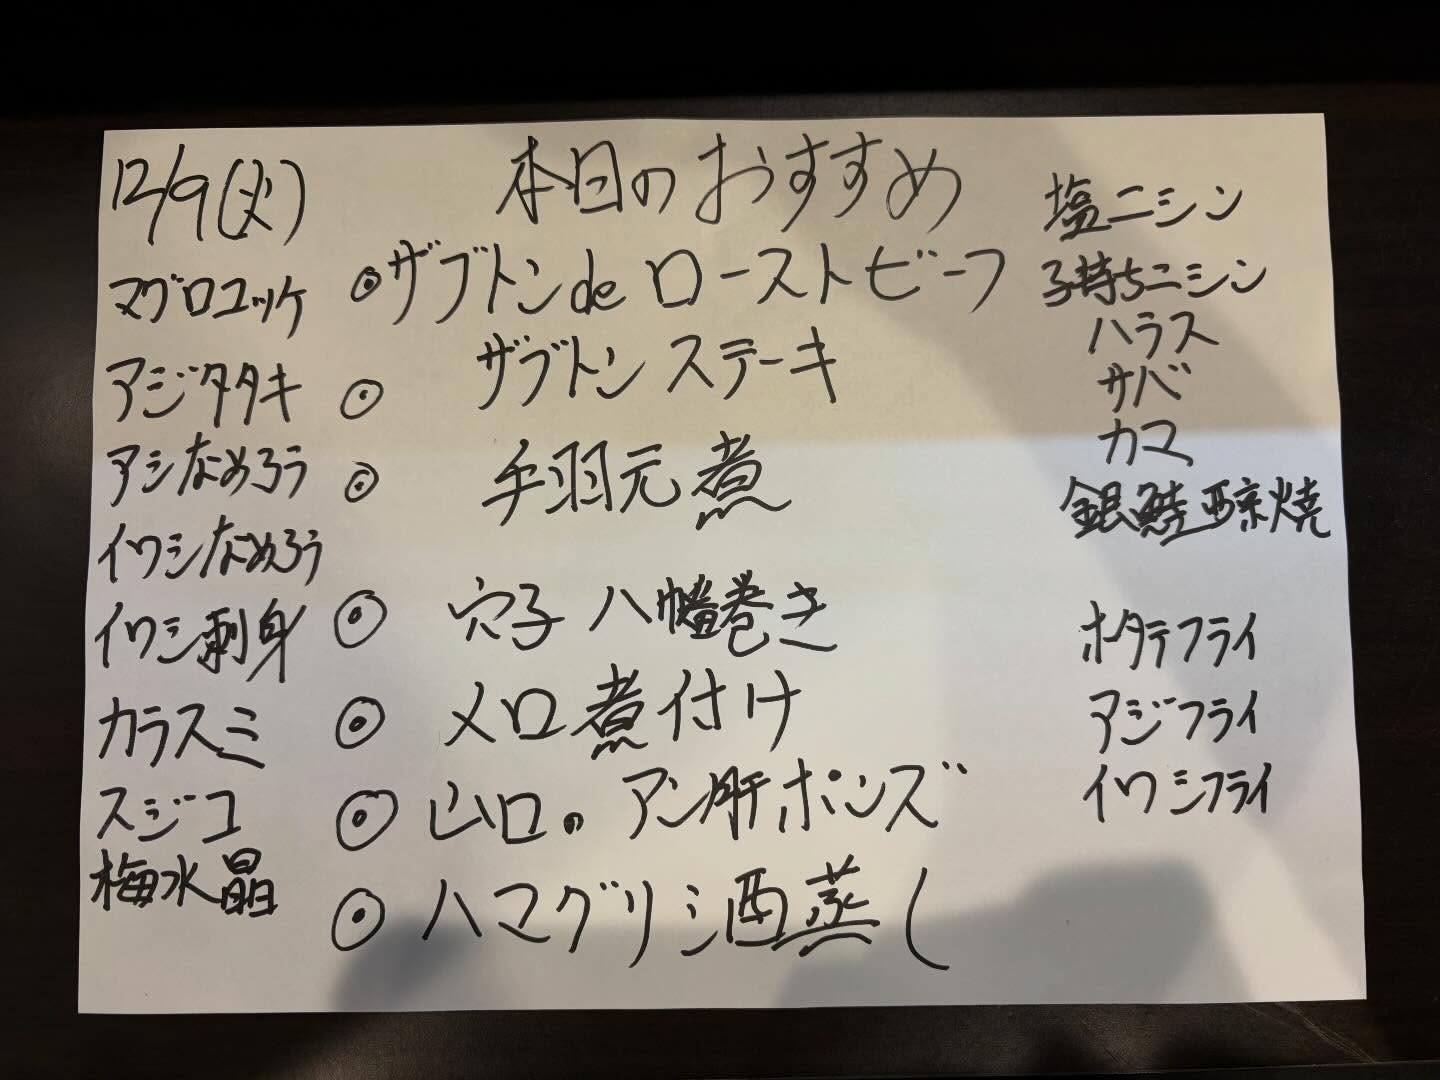 12/9(火)
本日のおすすめ
マグロユッケ
アジタタキ
アジなめろう
イワシなめろう
イワシ刺身
カラスミ
スジコ
梅水晶
◎ザブトンdeローストビーフ
◎ ザブトンステーキ
◎ 手羽元煮
◎ 穴子八幡巻き
◎ メロ煮付け
◎ 山口のアン肝ポンズ
◎ ハマグリ酒蒸し
塩ニシン
子持ちニシン
ハラス
サバ
カマ
銀鮭西京焼
ホタテフライ
アジフライ
イワシフライ